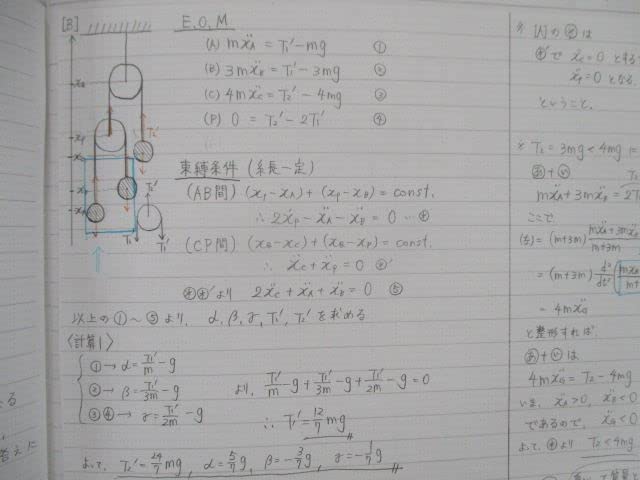 [B]
E.O.M
(A) mẍA = T1' - mg ①
(B) 3mẍB = T1' - 3mg ②
(C) 4mẍC = T2' - 4mg ③
(P) 0 = T2' - 2T1' ④
束縛条件 (糸長一定)
(AB間) (xP - xA) + (xP - xB) = const.
∴ 2ẍP - ẍA - ẍB = 0 …
(CP間) (xQ - xC) + (xQ - xP) = const.
∴ ẍC + ẍP = 0
より 2ẍC + ẍA + ẍB = 0 ⑤
以上の①~⑤より, α, β, γ, T1', T2' を求める
〈計算1〉
① → α = T1'/m - g
② → β = T1'/3m - g
③④ → γ = T1'/2m - g
より, T1'/m - g + T1'/3m - g + T1'/2m - g = 0
∴ T1' = 12/7 mg
よって, T2' = 24/7 mg, α = 5/7 g, β = -3/7 g, γ = -1/7 g
T2'
T2'
T1'
T1'
は
で ẍC = 0 とする
ẍP = 0 となる
ということ。
※ T2 = 3mg < 4mg に
あ + い
mẍA + 3mẍB = 2T
ここで,
(左) = (m+3m) (mẍA + 3mẍB)/(m+3m)
= (m+3m) d²/dt²
= 4mẍG
と整形すれば
あ + い は
4mẍG = T2 - 4mg
いま, ẍA > 0, ẍB < 0
であるので, ẍG < 0
よって, より T2 < 4mg
答えに